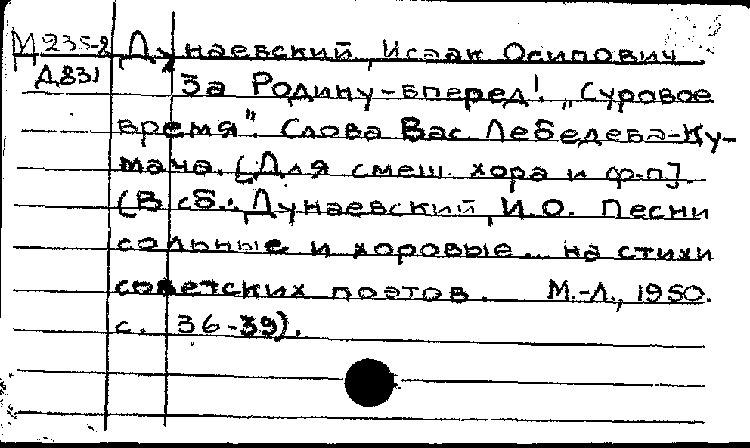 М235-8 Дунаевский, Исаак Осипович
Д831 За Родину-вперед! "Суровое
время". Слова Вас. Лебедева-Ку-
мача. [Для смеш. хора и ф-п].
(В сб.: Дунаевский, И.О. Песни
сольные и хоровые... на стихи
советских поэтов. М.-Л., 1950.
с. 36-39).